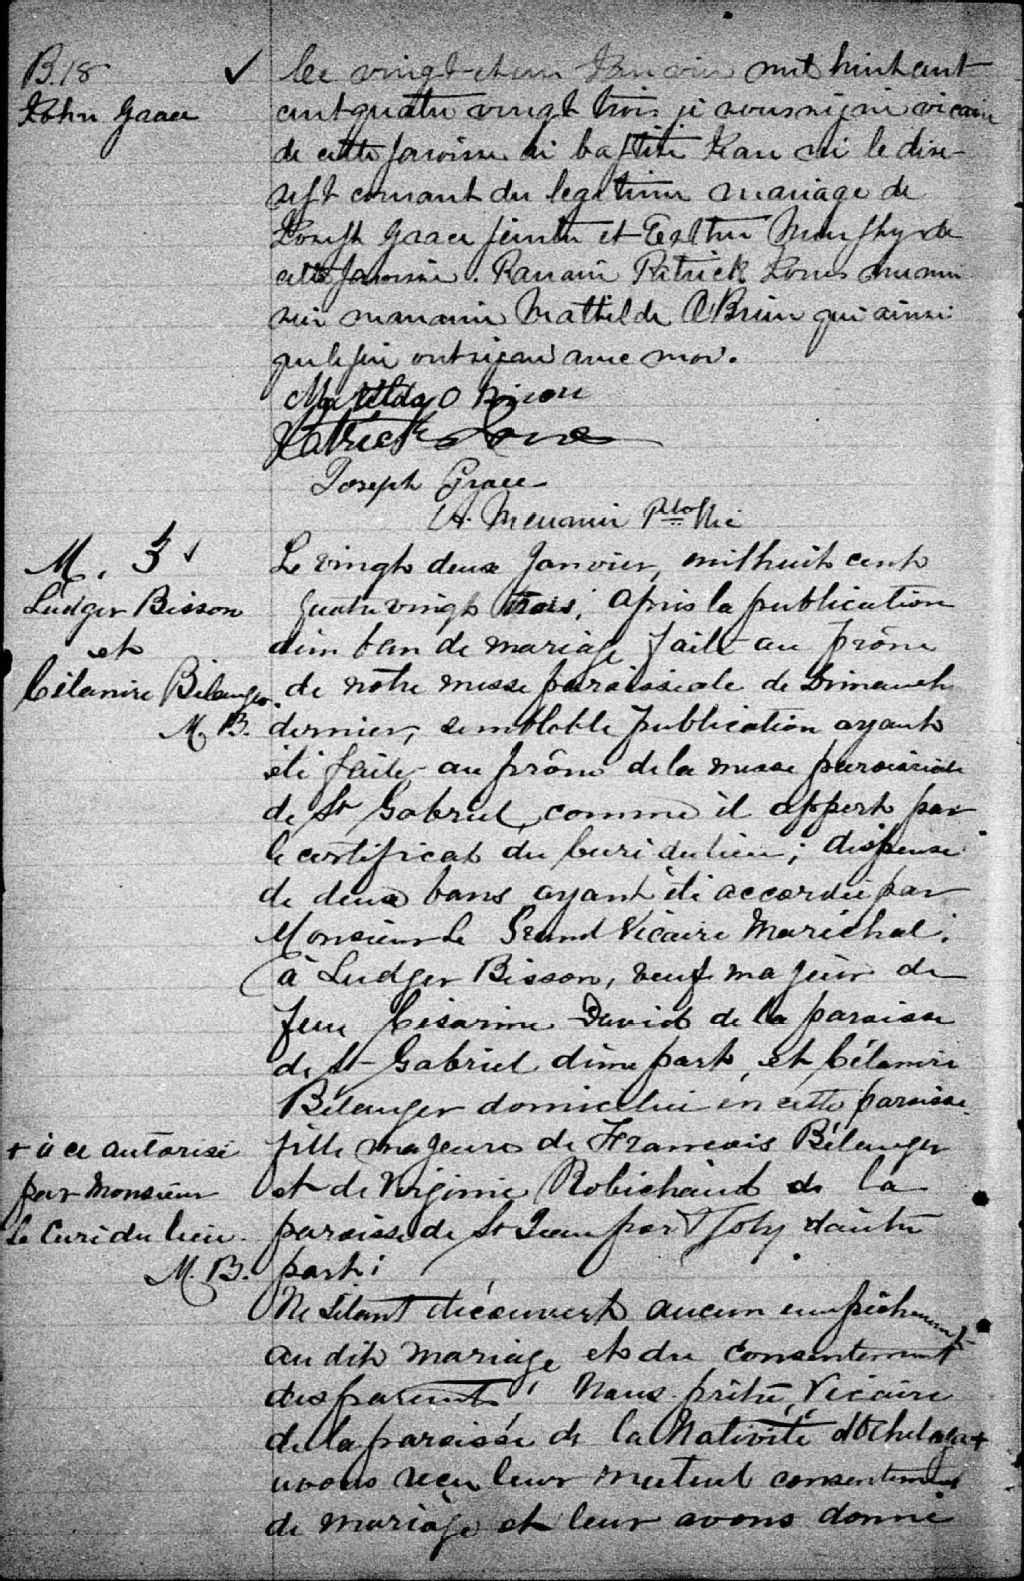 B.18
John Grace
Le vingt-et-un Janvier mil huit cent
cent quatre vingt trois je soussigné vicaire
de cette paroisse ai baptisé Jean né le dix-
sept courant du legitime mariage de
Joseph Grace peintre et Esther Murphy de
cette paroisse. Parrain Patrick
marraine Mathilde O'Brien qui ainsi
que le père ont signé avec moi.
Matilda O Brien
Patrick
Joseph Grace
Ptre
M. 3
Ludger Bisson
et
Célanire Bélanger.
M. B.
Le vingt deux Janvier, mil huit cent
quatre vingt trois; après la publication
d'un ban de mariage faite au prône
de notre messe paroissiale de Dimanche
dernier; semblable publication ayant
été faite au prône de la messe paroissiale
de St Gabriel, comme il appert par
le certificat du Curé du lieu; dispense
de deux bans ayant été accordée par
Monsieur le Grand Vicaire Maréchal.
à Ludger Bisson, veuf majeur de
feue Césarine David de la paroisse
de St-Gabriel d'une part, et Célanire
Bélanger domiciliée en cette paroisse
fille majeure de Francois Bélanger
et de Virginie Robichaud de la
paroisse de St Jean port Joly d'autre
part;
+ à ce autorisé
par Monsieur
le Curé du lieu.
M. B.
Ne s'étant découvert aucun empêchement
au dit mariage et du consentement
des parents, Nous prêtre, Vicaire
de la paroisse de la Nativité d'Hochelaga +
avons reçu leur mutuel consentement
de mariage et leur avons donné